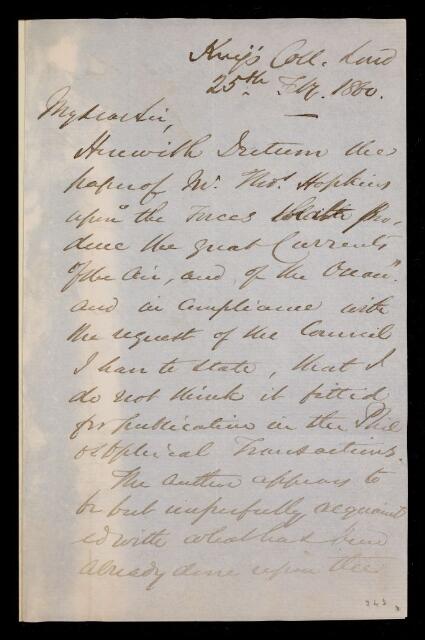 King's Coll. Lond
25th Feb. 1860.
My dear Sir,
Herewith I return the
paper of Mr. Thos. Hopkins
upon "the Forces which Pro-
duce the great Currents
of the Air, and of the Ocean".
and in compliance with
the request of the Council
I have to state, that I
do not think it fitted
for publication in the Phil
osophical Transactions.
The author appears to
be but imperfectly acquaint
ed with what has been
already done upon the